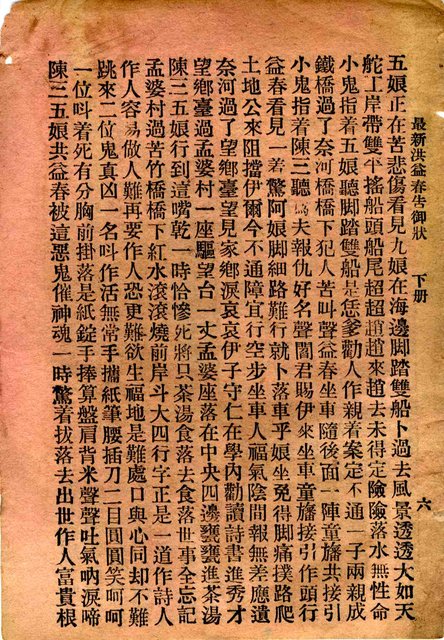 最新洪益春告御狀　下册　六
五娘正在苦悲傷看見九娘在海邊脚踏雙船卜過去風景透透大如天
舵工岸帶雙平搖船頭船尾超超趙趙來趙去未得定險險落水無性命
小鬼指着五娘聽脚踏雙船是恁爹勸人作親着案定不通一子兩親成
鐵橋過了奈河橋橋下犯人苦叫聲益春坐車隨後面一陣童旛共接引
小鬼指着陳三聽 夫報仇好名聲閻君賜伊來坐車童旛接引作頭行
益春看見一着驚阿娘脚細路難行就卜落車乎娘坐免得脚痛撲路爬
土地公來阻擋伊爾今不通障宜行空步坐車人福氣陰間報無差應遺
奈河過了望鄉臺望見家鄉淚哀哀伊子守仁在學內勸讀詩書進秀才
望鄉臺過孟婆村一座驅望台一丈孟婆座落在中央四邊甕甕進茶湯
陳三五娘行到這嘴乾一時恰慘死將只茶湯食落去食落世事全忘記
孟婆村過苦竹橋橋下紅水滾滾燒前岸斗大四行字正是一道作詩人
作人容易做人難再要作人恐更難欲生福地是難處口與心同却不難
跳來二位鬼真凶一名叫作活無常手攜紙筆腰插刀二目圓圓笑呵呵
一位叫着死有分胸前掛落是紙錠手捧算盤肩背米聲聲吐氣吶淚啼
陳三五娘共益春被這惡鬼催神魂一時驚着拔落去出世作人富貴根